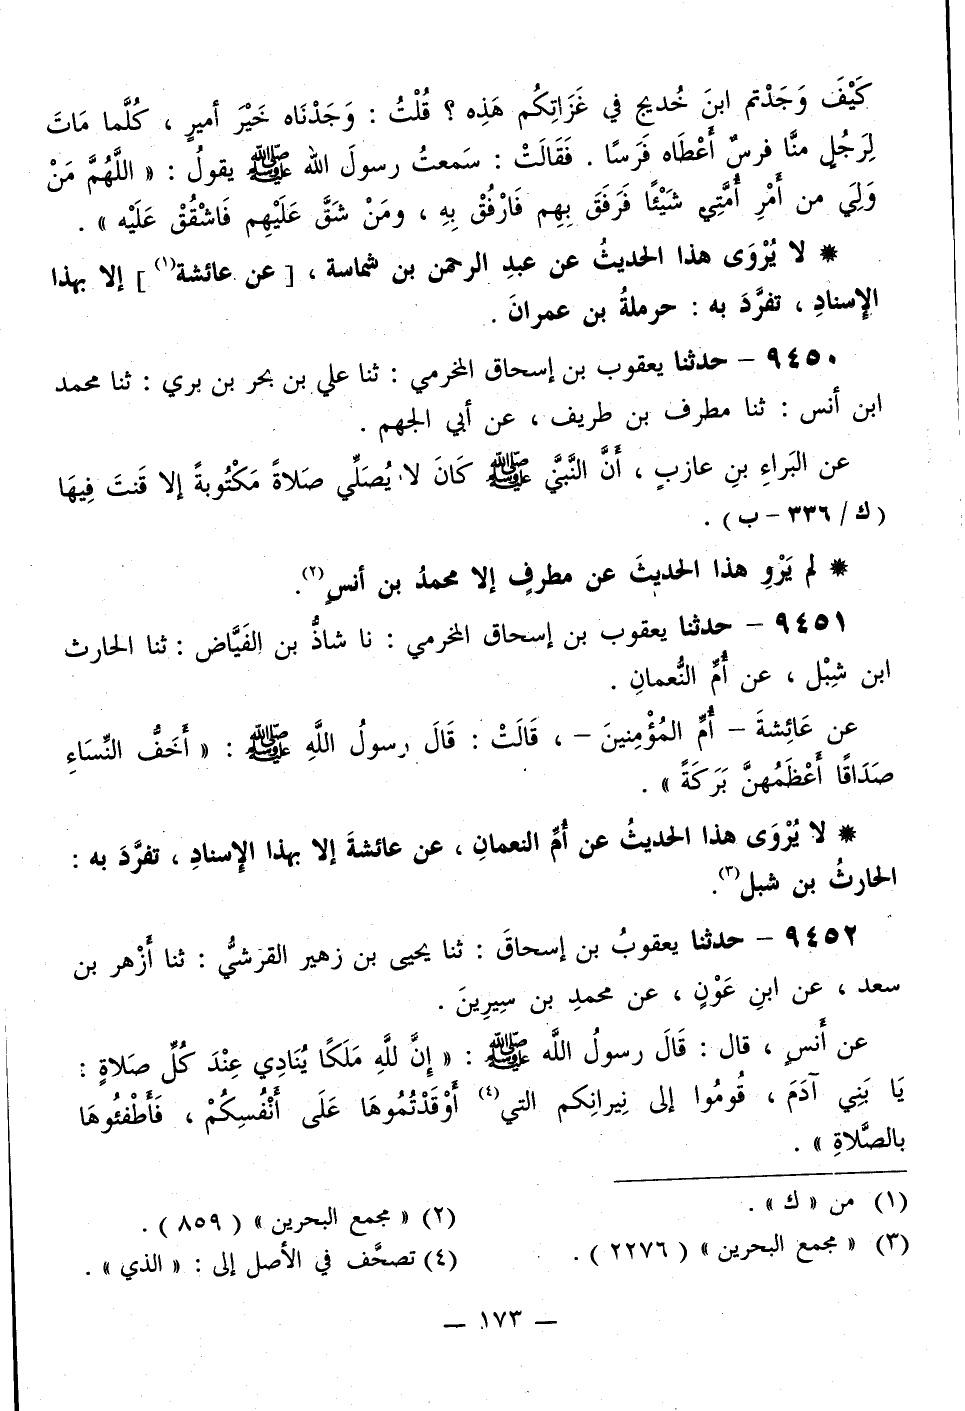 كَيْفَ وَجَدْتم ابنَ خُديج في غَزَاتِكُم هَذِه ؟ قُلْتُ : وَجَدْنَاه خَيْرَ أميرٍ ، كُلَّما مَاتَ
لِرَجُلٍ منَّا فرسٌ أَعْطَاه فَرَسًا . فَقَالَتْ : سَمعتُ رسولَ الله ﷺ يقولُ : « اللَّهُمَّ مَنْ
وَلِيَ من أَمْرِ أُمَّتِي شَيْئًا فَرَفَقَ بِهِم فَارْفُقْ بِهِ ، ومَنْ شَقَّ عَلَيْهِم فَاشْقُقْ عَلَيْه » .
* لا يُرْوَى هذا الحديثُ عن عبدِ الرحمن بن شماسة ، [ عن عائشة(١) ] إلا بهذا
الإِسنادِ ، تفرَّدَ به : حرملةُ بن عمرانَ .
٩٤٥٠ – حدثنا يعقوب بن إسحاق المخرمي : ثنا علي بن بحر بن بري : ثنا محمد
ابن أنس : ثنا مطرف بن طريف ، عن أبي الجهم .
عن البَراءِ بنِ عازبٍ ، أَنَّ النَّبيَّ ﷺ كَانَ لا يُصَلِّي صَلاةً مَكْتُوبةً إلا قَنتَ فِيهَا
( ك / ٣٣٦ – ب ) .
* لم يَرْوِ هذا الحديثَ عن مطرفٍ إلا محمدُ بن أنسٍ(٢) .
٩٤٥١ – حدثنا يعقوب بن إسحاق المخرمي : نا شاذُّ بن الفَيَّاض : ثنا الحارث
ابن شِبْل ، عن أُمِّ النُّعمانِ .
عن عَائِشةَ – أُمِّ المُؤْمِنينَ – ، قَالَتْ : قَالَ رسولُ اللَّهِ ﷺ : « أَخَفُّ النِّسَاءِ
صَدَاقًا أَعْظَمُهنَّ بَرَكَةً » .
* لا يُرْوَى هذا الحديثُ عن أُمِّ النعمانِ ، عن عائشةَ إلا بهذا الإِسنادِ ، تفرَّدَ به :
الحارثُ بن شبل(٣) .
٩٤٥٢ – حدثنا يعقوبُ بن إسحاقَ : ثنا يحيى بن زهير القرشيُّ : ثنا أَزْهر بن
سعد ، عن ابنِ عَوْنٍ ، عن محمدِ بن سِيرِينَ .
عن أَنسٍ ، قال : قَالَ رسولُ اللَّه ﷺ : « إِنَّ للَّهِ مَلَكًا يُنَادِي عِنْدَ كُلِّ صَلاةٍ :
يَا بَنِي آدَمَ ، قُومُوا إلى نِيرانِكم التي(٤) أَوْقَدْتُمُوهَا عَلَى أَنْفُسِكُمْ ، فَأَطْفئُوهَا
بالصَّلاةِ » .
(١) من « ك » .
(٢) « مجمع البحرين » ( ٨٥٩ ) .
(٣) « مجمع البحرين » ( ٢٢٧٦ ) .
(٤) تصحَّف في الأصل إلى : « الذي » .
— ١٧٣ —